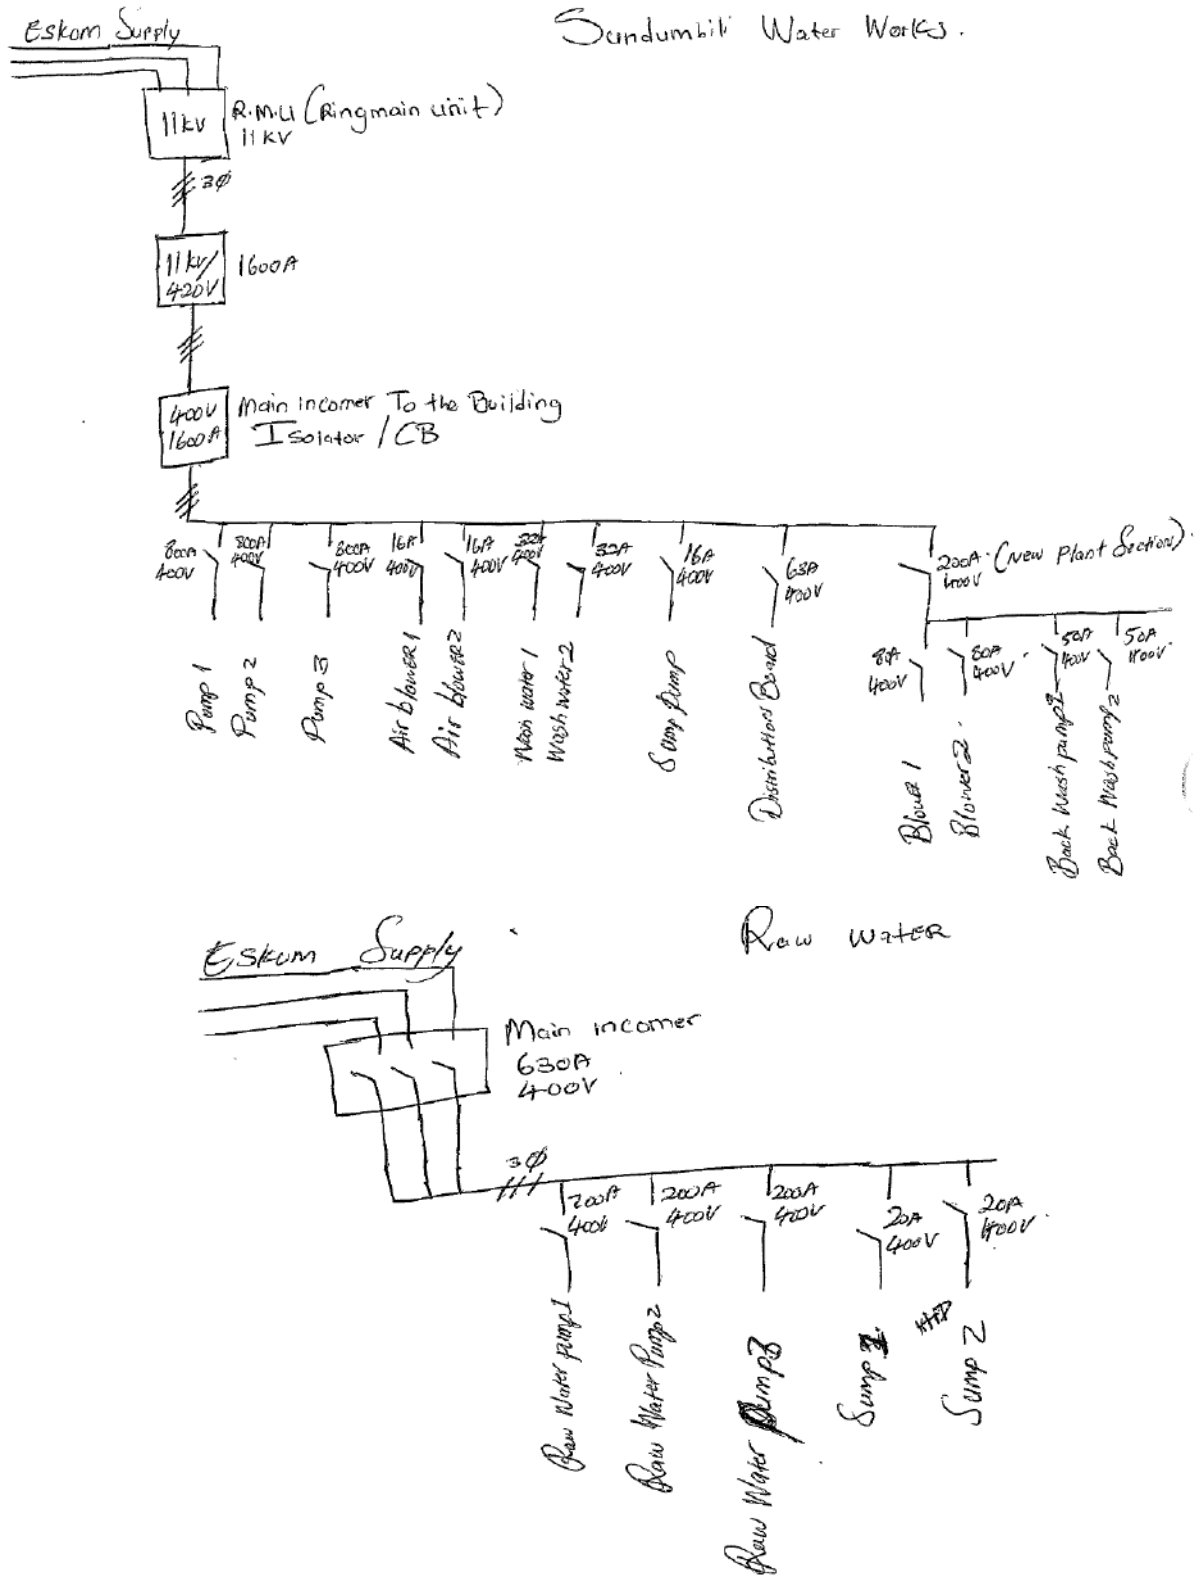 Eskom Supply
Sundumbili Water Works.
11kV
R.M.U (Ringmain unit)
11kV
3Ø
11kV/
420V
1600A
400V
1600A
Main incomer To the Building
Isolator / CB
800A
400V
800A
400V
800A
400V
16A
400V
16A
400V
32A
400V
32A
400V
16A
400V
63A
400V
200A. (New Plant Section).
400V
80A
400V
80A
400V.
50A
400V
50A
400V.
Pump 1
Pump 2
Pump 3
Air blowER1
Air blowER2
Wash water 1
Wash water 2
Sump Pump
Distributions Board
Blower 1
Blower 2.
Back Wash pump1
Back Wash pump 2
Eskom Supply
Raw WatER
Main incomer
630A
400V
3Ø
200A
400V
200A
400V
200A
400V
20A
400V
20A
400V.
Raw Water pump1
Raw Water Pump2
Raw Water Pump3
Sump 1.
Sump 2